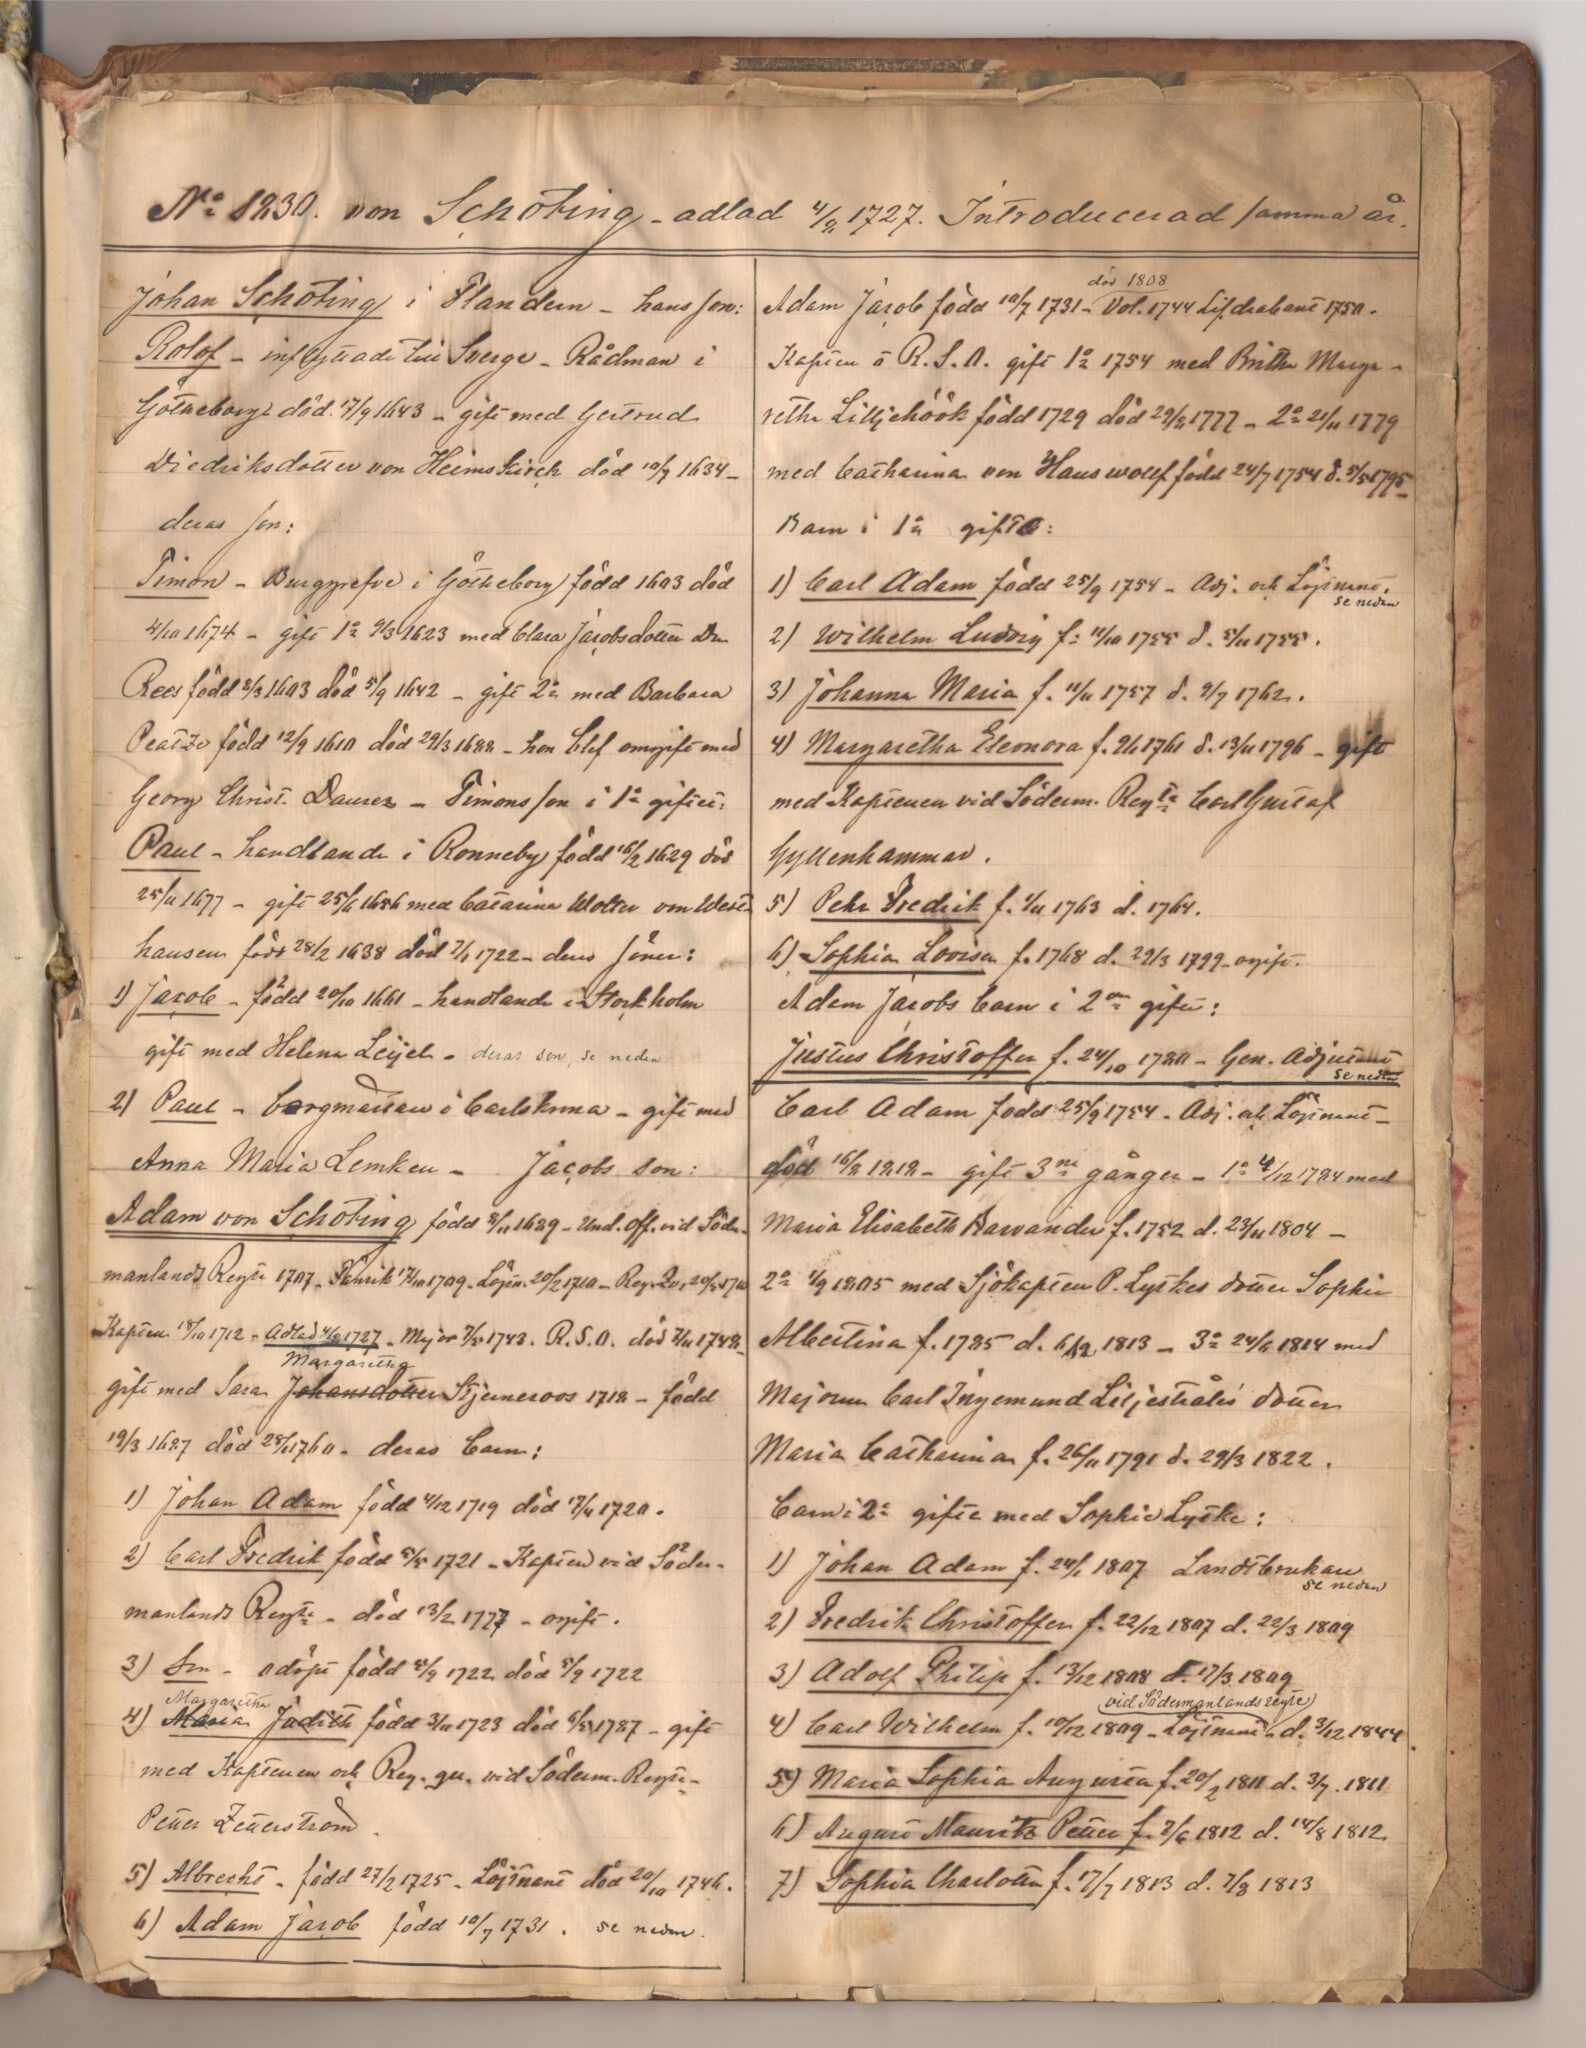 No 1230. von Schöting - adlad 4/8 1727. Introducerad samma år.
Johan Schöting i Flandern - hans son:
Rolof - inflyttade till Sverge - Rådman i
Götheborg död 17/9 1643 - gift med Gertrud
Diedriksdotter von Heimskirch död 10/7 1634 -
deras son:
Timon - Burggrefve i Götheborg född 1603 död
4/10 1674 - gift 1o 9/3 1623 med Clara Jacobsdotter De
Rees född 8/3 1603 död 5/9 1642 - gift 2o med Barbara
Peatze född 12/9 1610 död 29/3 1688 - hon blef omgift med
Georg Christ. Daurer - Timons son i 1o giftet:
Paul - handlande i Ronneby född 16/2 1629 död
25/11 1677 - gift 25/6 1656 med Catarina Wolter von West
hausen född 28/2 1638 död 7/1 1722 - deras söner:
1) Jacob - född 20/10 1661 - handlande i Stockholm
gift med Helena Leijel - deras son, se neden
2) Paul - borgmästare i Carlskrona - gift med
Anna Maria Lemken - Jacobs son:
Adam von Schöting född 8/11 1689 - Und. Off. vid Söder-
manlands Regte 1707 - Fenrik 17/10 1709 - Löjtn. 20/2 1710 - Reg. Qv. 20/5 1710
Kapten 18/10 1712 - Adlad 4/8 1727 - Major 7/5 1743. R.S.O. död 2/11 1748 -
Margaretha
gift med Sara Johansdotter Stjerneroos 1718 - född
19/3 1687 död 28/1 1760. deras barn:
1) Johan Adam född 4/12 1719 död 17/4 1720.
2) Carl Fredrik född 5/5 1721 - Kapten vid Söder-
manlands Regte - död 13/2 1777 - ogift.
3) Son - odöpt född 5/9 1722 död 5/9 1722
Margaretha
4) Maria Judith född 3/11 1723 död 6/5 1787 - gift
med Kaptenen och Reg. qu. vid Söderm. Regte -
Petter Zetterström
5) Albrecht - född 27/2 1725 - Löjtnant död 20/10 1746.
6) Adam Jacob född 10/7 1731. se nedan.
död 1808
Adam Jacob född 10/7 1731 - Vol. 1744 Lifdrabant 1750.
Kapten o R.S.O. gift 1o 1754 med Britha Marga-
retha Lilljehöök född 1729 död 29/8 1777 - 2o 21/11 1779
med Catharina von Hauswolff född 24/7 1754 d. 5/5 1795 -
Barn i 1a gifte:
1) Carl Adam född 25/9 1754 - Adj. och Löjtnant.
se nedan
2) Wilhelm Ludvig f: 11/10 1755 d. 5/11 1755.
3) Johanna Maria f. 11/11 1757 d. 9/7 1762.
4) Margaretha Eleonora f. 9/1 1761 d. 13/11 1796 - gift
med Kaptenen vid Söderm. Regte Carl Gustaf
Gyllenhammar.
5) Pehr Fredrik f. 4/11 1763 d. 1764.
6) Sophia Lovisa f. 1768 d. 29/3 1799 - ogift.
Adam Jacobs barn i 2dra gifte:
Justus Christoffer f. 24/10 1780 - Gen. Adjutant
se nedan
Carl Adam född 25/9 1754 - Adj. och Löjtnant -
död 16/8 1818 - gift 3ne gånger - 1o 4/12 1784 med
Maria Elisabeth Arvander f. 1752 d. 23/11 1804 -
2o 1/9 1805 med Sjökapten P. Lyckes dotter Sophia
Albertina f. 1785 d. 6/12 1813 - 3o 24/6 1814 med
Majoren Carl Ingemund Liljestråles dotter
Maria Catharina f. 26/11 1791 d. 29/3 1822.
barn i 2a gifte med Sophie Lycke:
1) Johan Adam f. 24/1 1807 Landtbrukare
se nedan
2) Fredrik Christoffer f. 22/12 1807 d. 22/3 1809
3) Adolf Philip f. 13/12 1808 d. 17/3 1809
vid Södermanlands regte
4) Carl Wilhelm f. 10/12 1809 - Löjtnant - d. 3/12 1844.
5) Maria Sophia Augusta f. 20/2 1811 d. 3/7. 1811
6) August Mauritz Petter f. 7/6 1812 d. 14/8 1812
7) Sophia Charlotta f. 17/7 1813 d. 7/8 1813